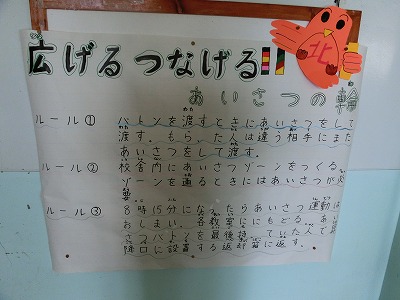 広げる つなげる!!
北
あいさつの輪
ルール① バトンを渡すときにあいさつをして
渡す。もらった人は違う相手にまた
あいさつをして渡す。
ルール② 校舎内にあいさつゾーンをつくる。
ゾーンを通るときにはあいさつが必
要。
ルール③ 8時15分になったらあいさつ運動は
おしまい。各教室にもどる。あい
さつバトンを最後持っていた人で
降口に設置する返却箱に返す。